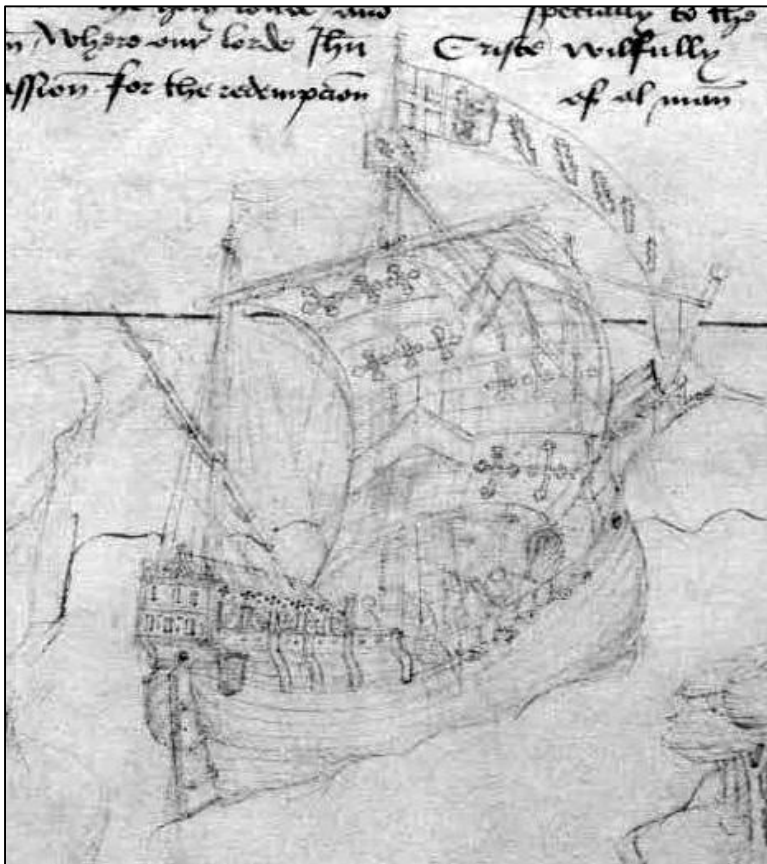 the holy londe and specially to the
n, Where our lorde Jhu Criste wilfully
assion for the redempcion of al man